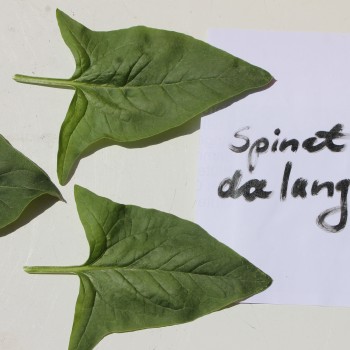 Spinat
da lang